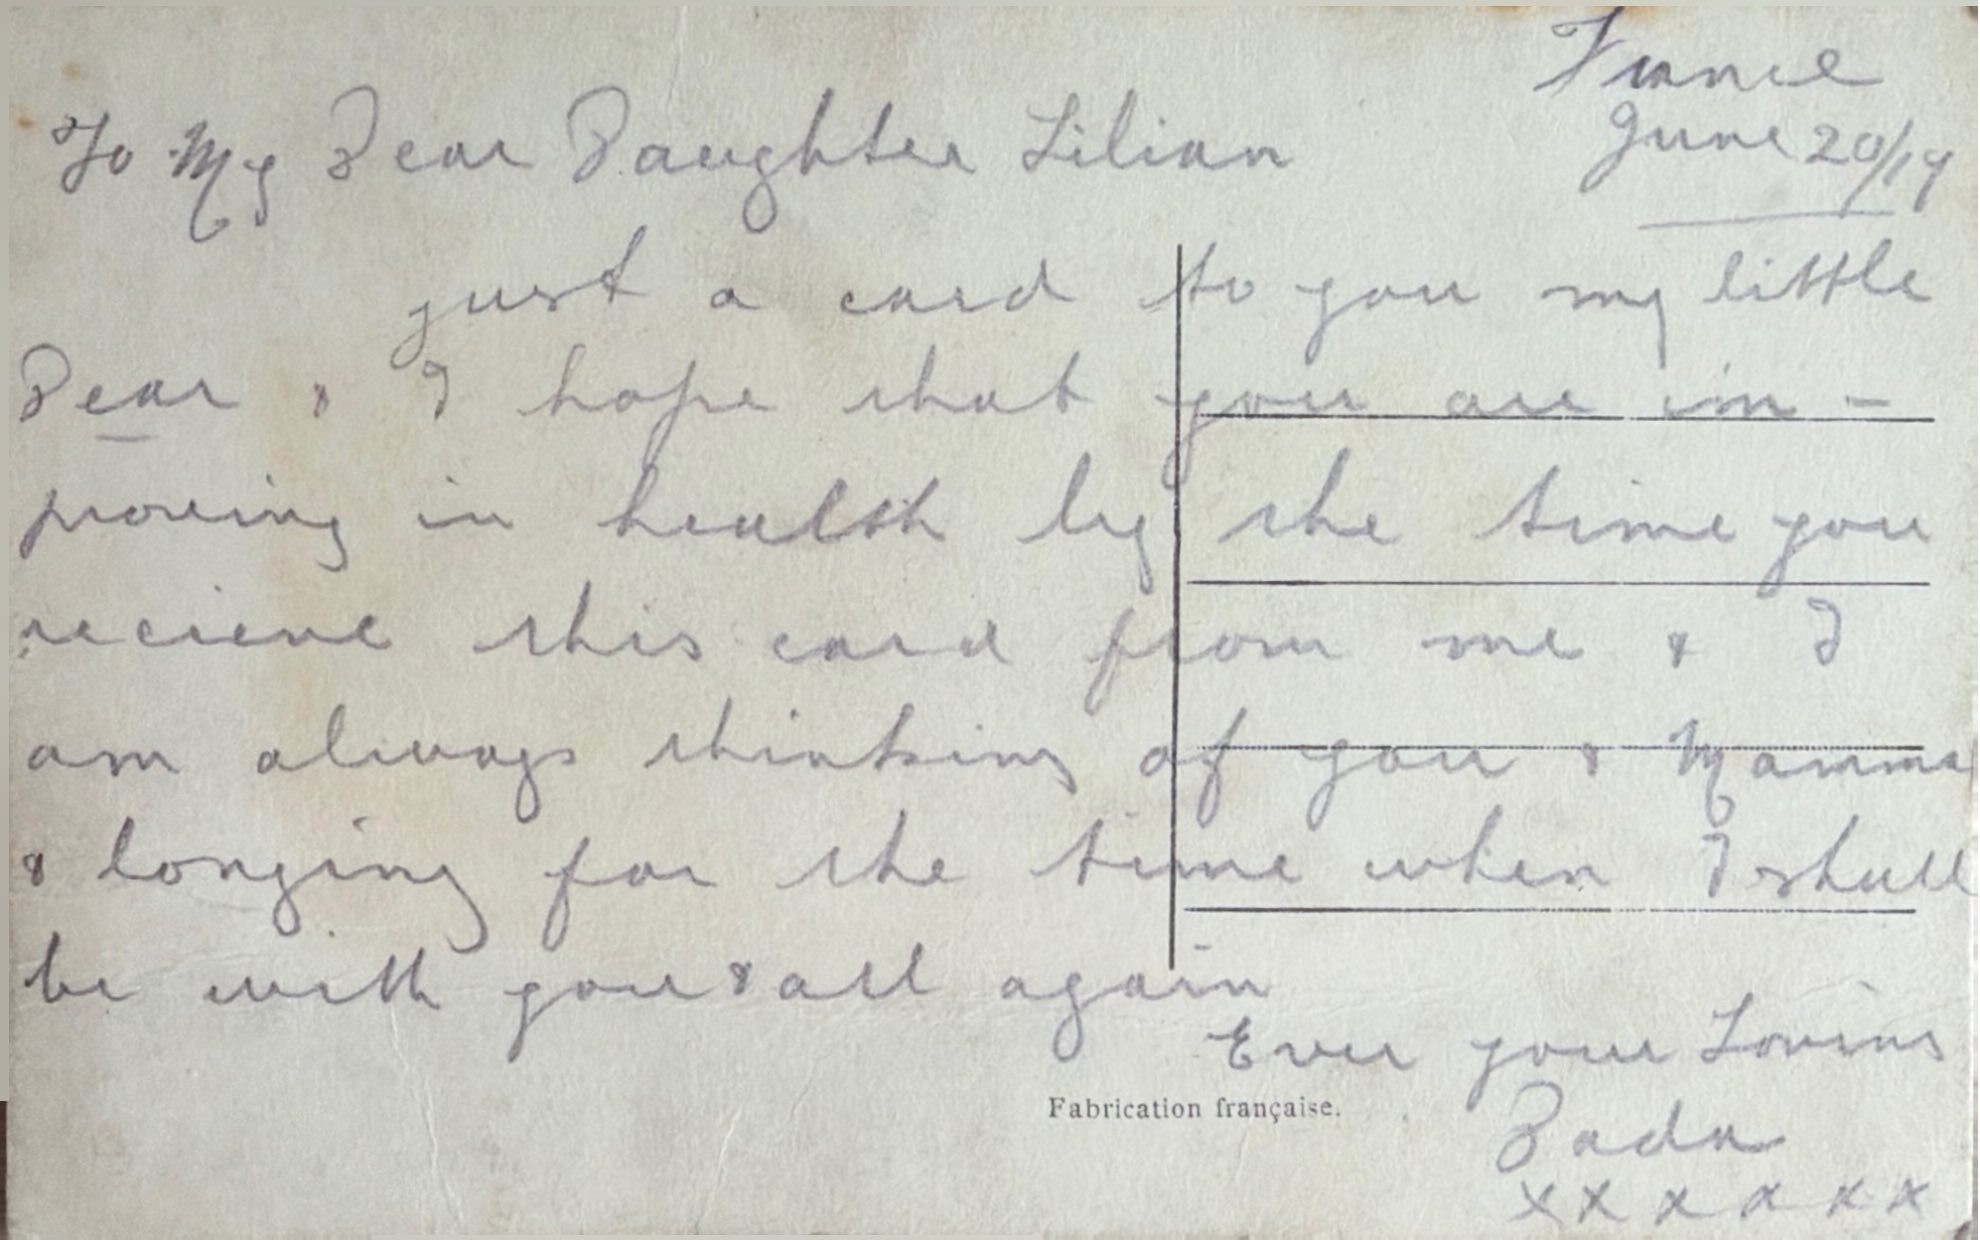 France
June 20/19
To My Dear Daughter Lilian
just a card to you my little
Dear & I hope that you are im-
proving in health by the time you
recieve this card from me & I
am always thinking of you & Mamma
& longing for the time when I shall
be with you & all again
Ever your Loving
Dada
xxxxxx
Fabrication française.